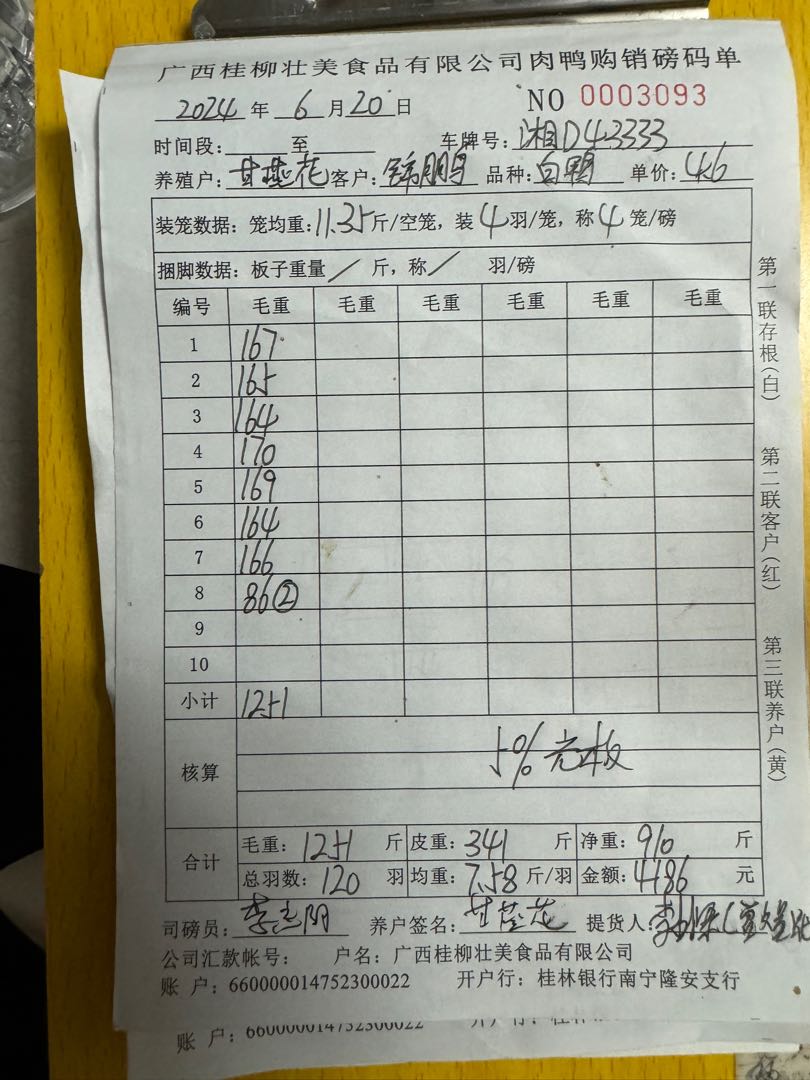 广西桂柳壮美食品有限公司肉鸭购销磅码单
2024 年 6 月 20 日 NO 0003093
时间段: 至 车牌号: 湘D43333
养殖户: 甘莲花 客户: 锦鹏 品种: 白鸭 单价: 4.6
装笼数据: 笼均重: 11.35 斤/空笼, 装 4 羽/笼, 称 4 笼/磅
捆脚数据: 板子重量 / 斤, 称 / 羽/磅
编号 毛重 毛重 毛重 毛重 毛重 毛重
1 167
2 165
3 164
4 170
5 169
6 164
7 166
8 86②
9
10
小计 1251
核算 5% 光板
合计 毛重: 1251 斤 皮重: 341 斤 净重: 910 斤
总羽数: 120 羽 均重: 7.58 斤/羽 金额: 4186 元
司磅员: 李 阳 养户签名: 甘莲花 提货人:
公司汇款帐号: 户名: 广西桂柳壮美食品有限公司
账 户: 660000014752300022 开户行: 桂林银行南宁隆安支行
第一联存根(白) 第二联客户(红) 第三联养户(黄)
账 户: 660000014752300022